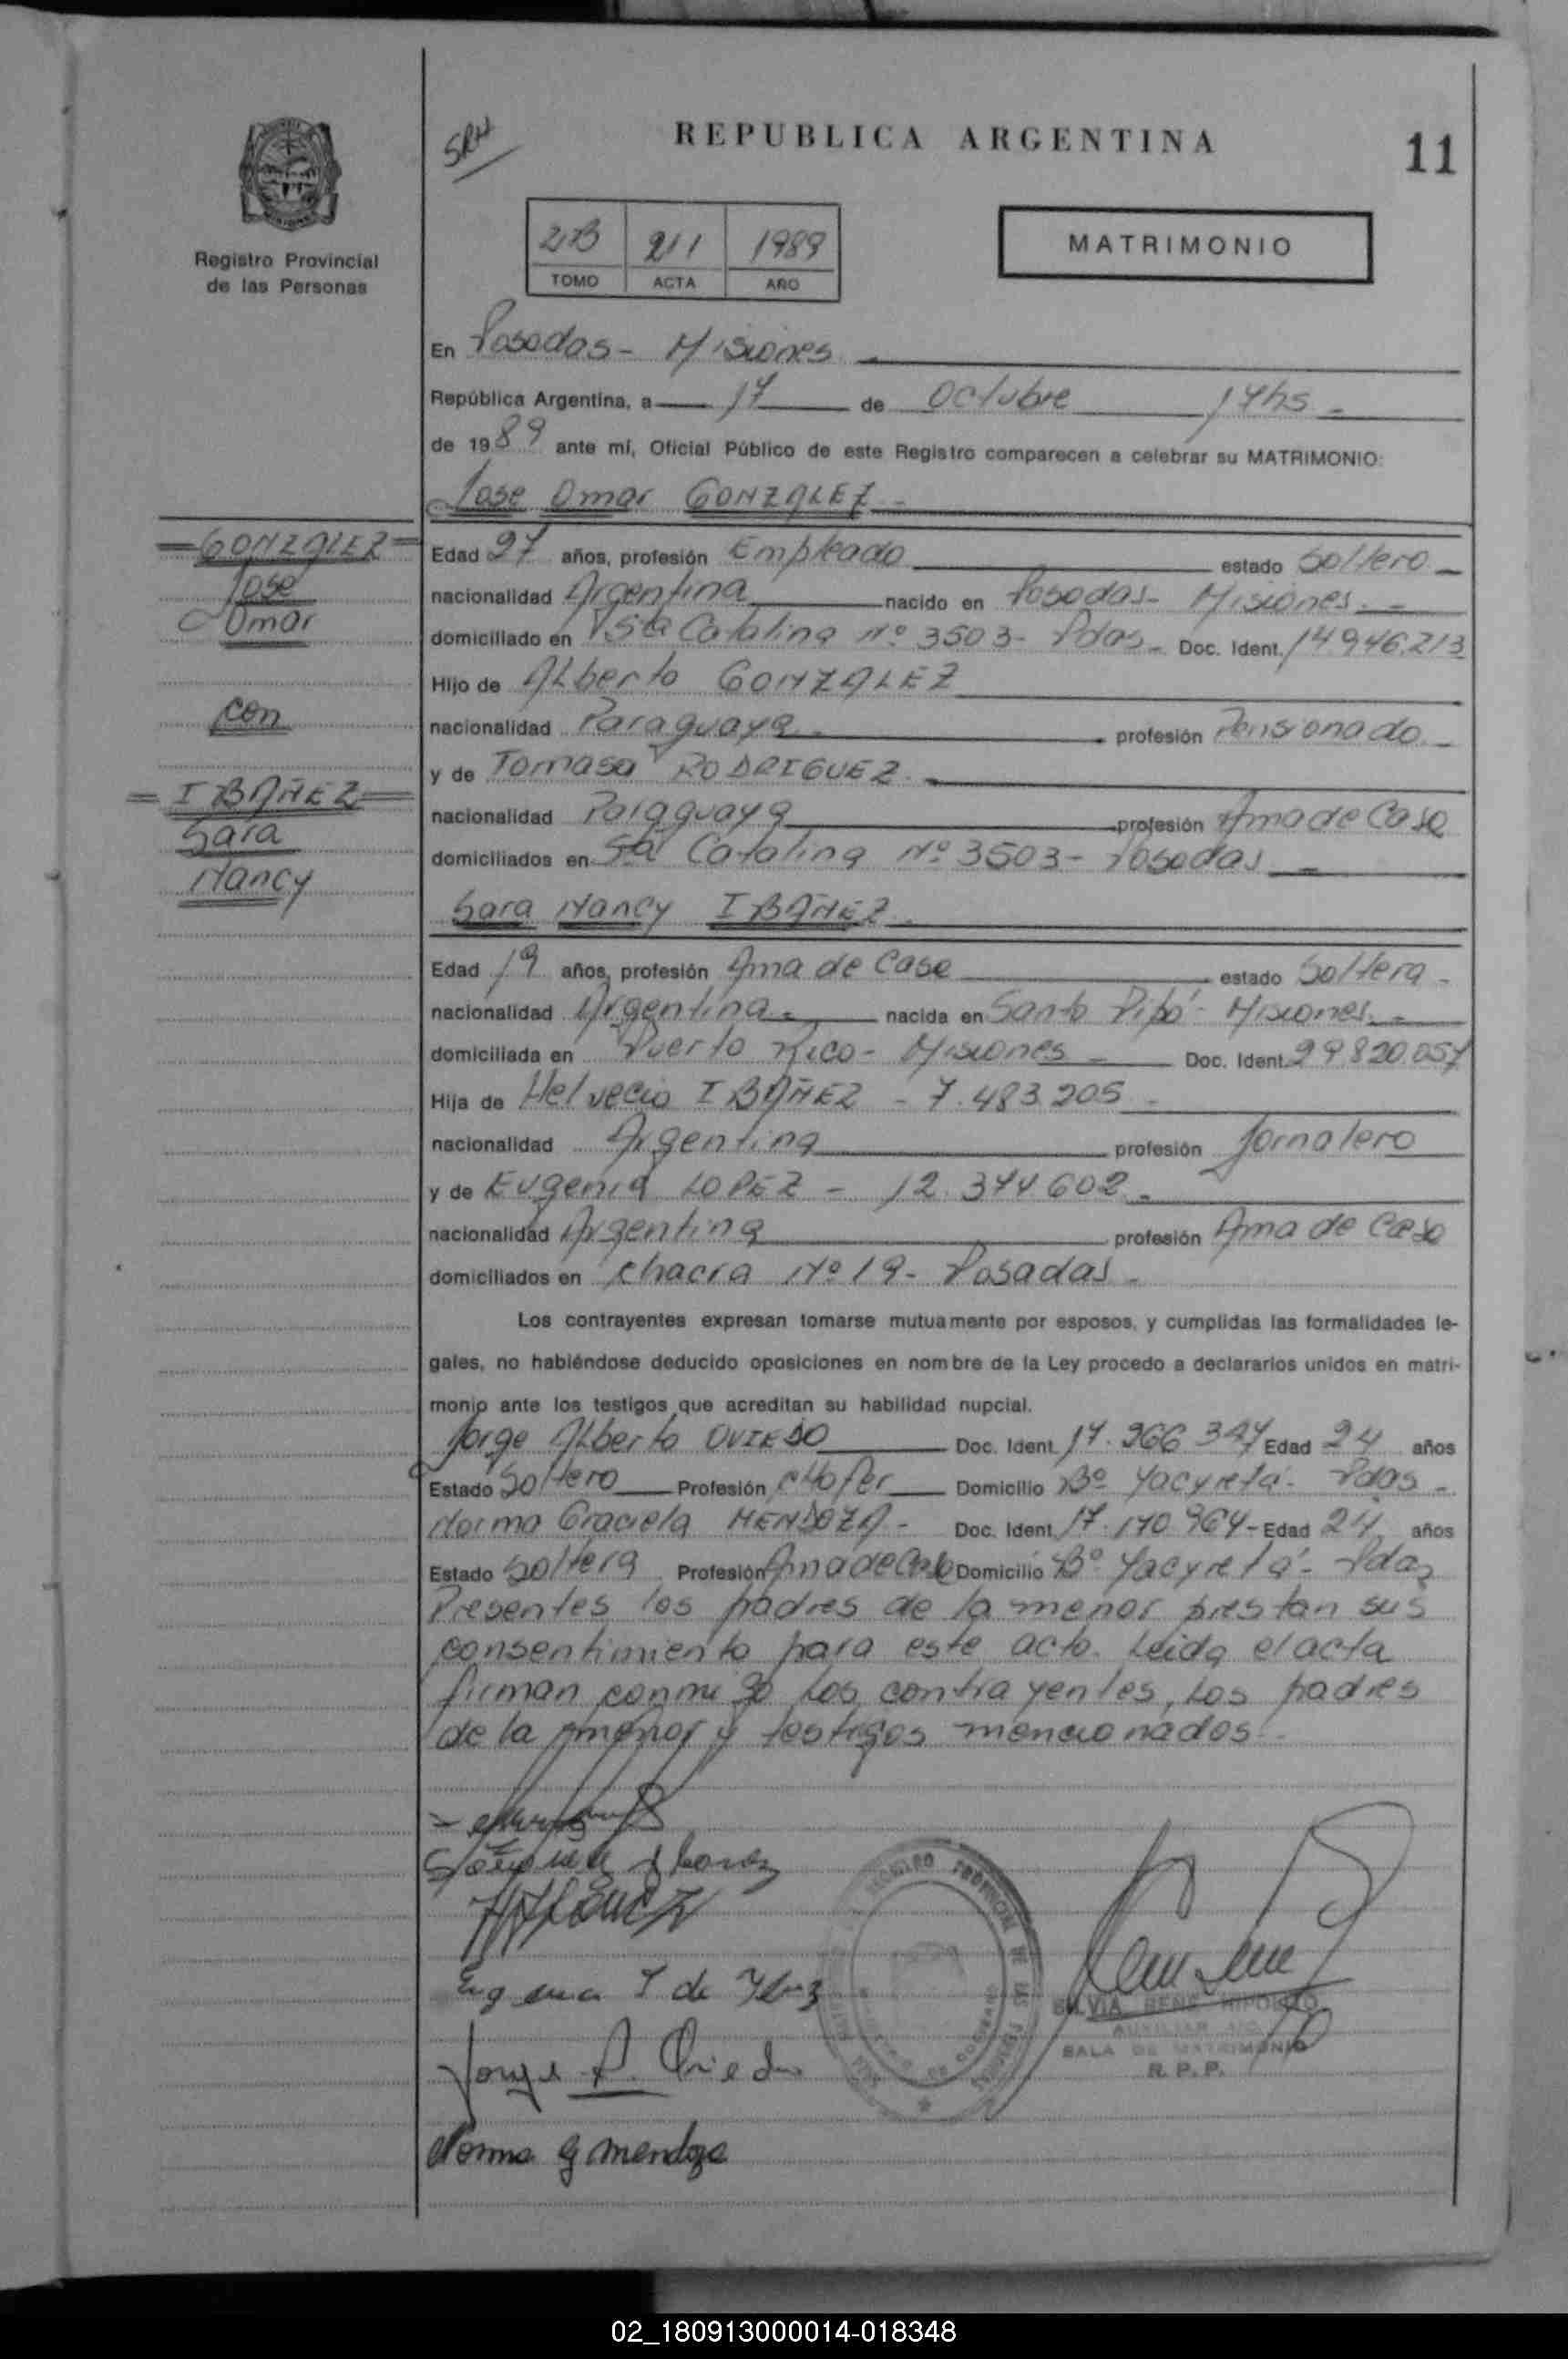 SRH
REPUBLICA ARGENTINA
11
Registro Provincial
de las Personas
2B 211 1989
TOMO ACTA AÑO
MATRIMONIO
En Posadas - Misiones
República Argentina, a 17 de Octubre 17hs -
de 1989 ante mí, Oficial Público de este Registro comparecen a celebrar su MATRIMONIO:
Jose Omar GONZALEZ -
= GONZALEZ =
Jose
Omar
con
= IBAÑEZ =
Sara
Nancy
Edad 27 años, profesión Empleado estado Soltero -
nacionalidad Argentina nacido en Posadas - Misiones. -
domiciliado en Sta Catalina Nº 3503 - Pdas - Doc. Ident. 14.946.213
Hijo de ALberto GONZALEZ
nacionalidad Paraguaya - profesión Pensionado -
y de Tomasa RODRIGUEZ. -
nacionalidad Paraguaya profesión Ama de Casa
domiciliados en Sta Catalina Nº 3503 - Posadas -
Sara Nancy IBAÑEZ.
Edad 19 años, profesión Ama de Casa estado Soltera -
nacionalidad Argentina - nacida en Santo Pipó - Misiones. -
domiciliada en Puerto Rico - Misiones - Doc. Ident. 29.820.057
Hija de Helvecio IBAÑEZ - 7.483.205 -
nacionalidad Argentina profesión Jornalero
y de Eugenia LOPEZ - 12.374.602 -
nacionalidad Argentina profesión Ama de Casa
domiciliados en Chacra Nº 19 - Posadas -
Los contrayentes expresan tomarse mutuamente por esposos, y cumplidas las formalidades le-
gales, no habiéndose deducido oposiciones en nombre de la Ley procedo a declararlos unidos en matri-
monio ante los testigos que acreditan su habilidad nupcial.
Jorge ALberto OVIEDO Doc. Ident. 17.366 347 Edad 24 años
Estado Soltero Profesión chofer Domicilio Bº Yacyretá - Pdas -
Norma Graciela MENDOZA - Doc. Ident. 17.170 964 - Edad 24 años
Estado Soltera Profesión Ama de Casa Domicilio Bº Yacyretá - Pdas
Presentes los padres de la menor prestan sus
consentimiento para este acto. Leida el acta
firman conmigo Los contrayentes, Los padres
de la menor y testigos mencionados -
Eugenia L de
Jorge A. Oviedo
Norma G Mendoza
REGISTRO PROVINCIAL DE LAS PERSONAS
SILVIA RENE HIPOLITO
AUXILIAR
SALA DE MATRIMONIO
R. P. P.
02_180913000014-018348